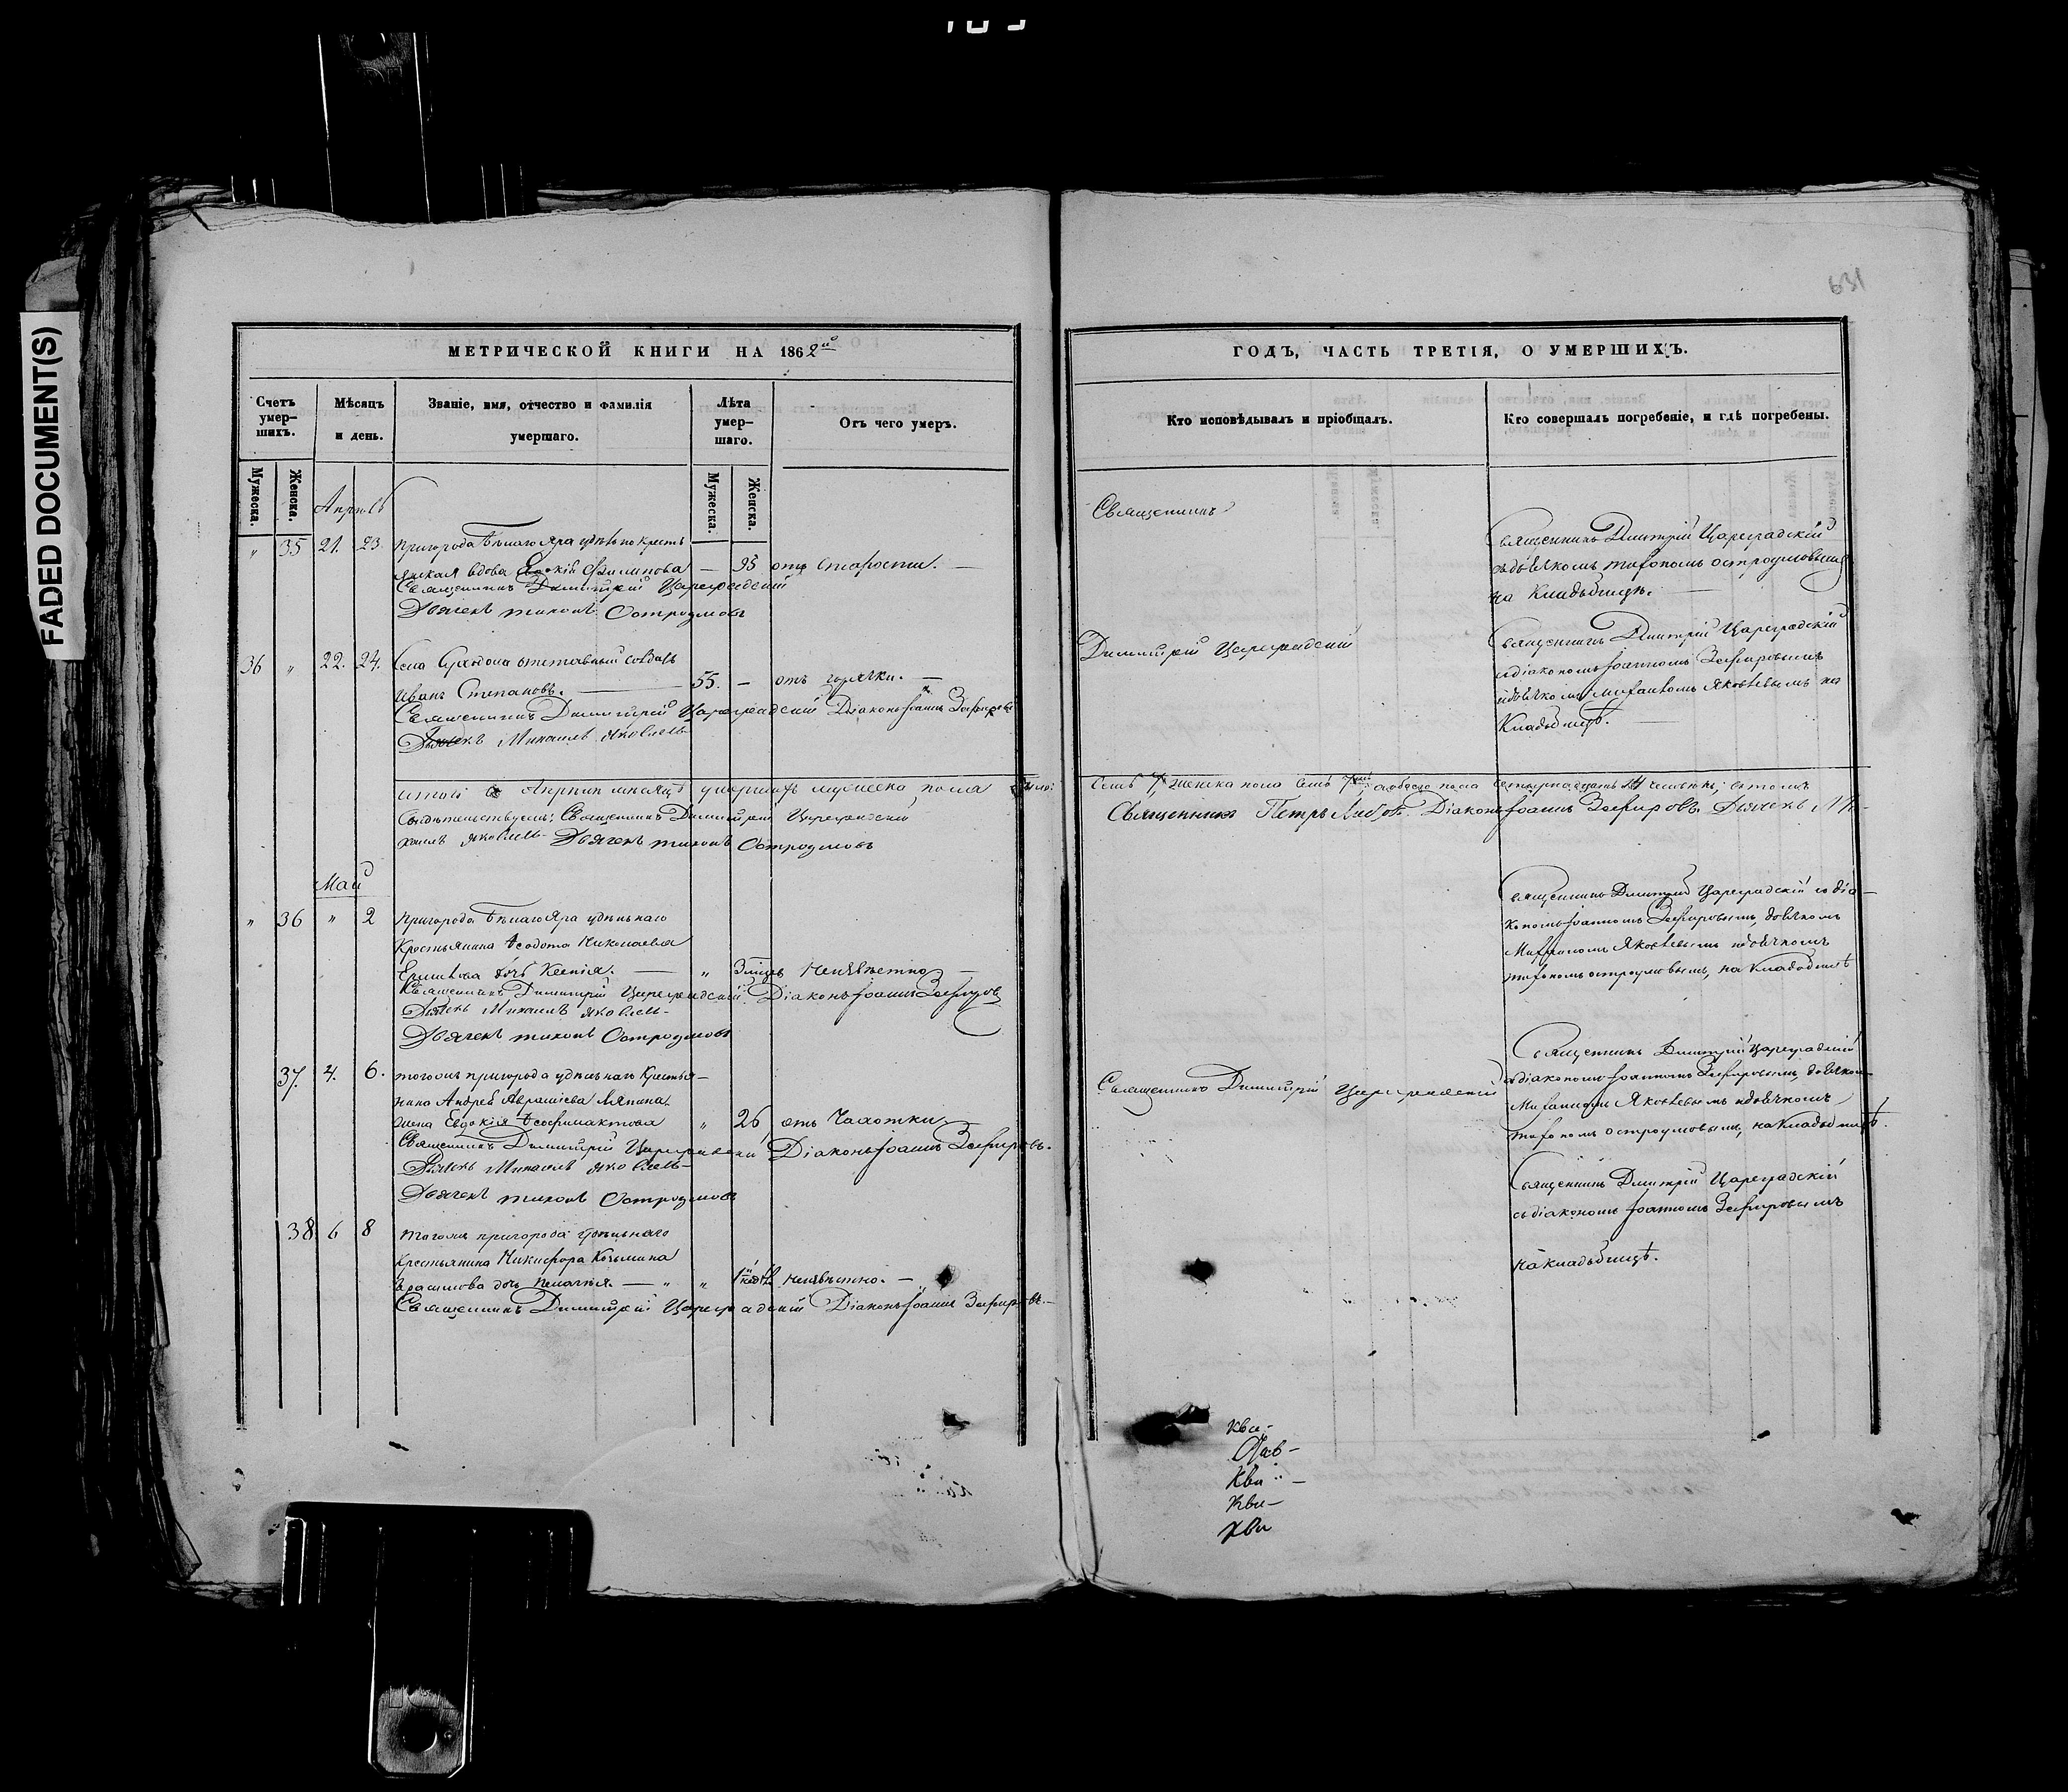 FADED DOCUMENT(S)
631
МЕТРИЧЕСКОЙ КНИГИ НА 1862й
Счетъ умер-
шихъ.
Мѣсяцъ
и день.
Званіе, имя, отчество и фамилія
умершаго.
Лѣта
умер-
шаго.
Отъ чего умеръ.
Мужеска.
Женска.
Мужеска.
Женска.
Апрѣль
" 35 21. 23. Пригорода Бѣлаго Яра удѣльно кресть
янская вдова Филипова — 95 отъ старости. —
Священникъ Димитрій Цареградскій
Дьячекъ Тихонъ Остроумовъ
36 " 22. 24. Села отставный солдатъ
Иванъ Степановъ. — 55. — отъ горячки. —
Священникъ Димитрій Цареградскій Діаконъ Іоаннъ Зефировъ
Дьячекъ Михаилъ Яковлевъ
Итого въ Апрѣлѣ мѣсяцѣ умершихъ мужеска пола
Свидѣтельствуемъ: Священникъ Димитрій Цареградскій
хаилъ Яковлевъ Дьячекъ Тихонъ Остроумовъ
Май
" 36 " 2 Пригорода Бѣлаго Яра удѣльнаго
Крестьянина Ѳедота Николаева
дочь Ксенія. — " 3 мѣсяц Неизвѣстно —
Священникъ Димитрій Цареградскій Діаконъ Іоаннъ Зефировъ
Дьячекъ Михаилъ Яковлевъ
Дьячекъ Тихонъ Остроумовъ
37. 4. 6. Тогожъ пригорода удѣльнаго Крестья-
нина Андрея Авраміева Ляпина
жена Евдокія Ѳеофилактова " 26 отъ Чахотки
Священникъ Димитрій Цареградскій Діаконъ Іоаннъ Зефировъ.
Дьячекъ Михаилъ Яковлевъ
Дьячекъ Тихонъ Остроумовъ
38 6 8 Тогожъ пригорода удѣльнаго
Крестьянина Никифора Козьмина
дочь Пелагія. — " " неизвѣстно. —
Священникъ Димитрій Цареградскій Діаконъ Іоаннъ Зефировъ. —
ГОДЪ, ЧАСТЬ ТРЕТІЯ, О УМЕРШИХЪ.
Кто исповѣдывалъ и пріобщалъ.
Кто совершалъ погребеніе, и гдѣ погребены.
Священникъ
Священникъ Дмитрій Цареградскій
съ дьячкомъ Тихономъ Остроумовымъ
на кладбищѣ. —
Димитрій Цареградскій
Священникъ Дмитрій Цареградскій
съ діакономъ Іоанномъ Зефировымъ
и дьячкомъ Михаиломъ Яковлевымъ на
Кладбищѣ.
Семь 7 женска пола семь 7 обоего пола четырнадцать 14 человѣкъ; въ томъ
Священникъ Петръ Діаконъ Іоаннъ Зефировъ Дьячекъ Ми-
Священникъ Дмитрій Цареградскій съ діа-
кономъ Іоанномъ Зефировымъ, дьячкомъ
Михаиломъ Яковлевымъ и дьячкомъ
Тихономъ Остроумовымъ, на кладбищѣ
Священникъ Димитрій Цареградскій
Священникъ Дмитрій Цареградскій
съ діакономъ Іоанномъ Зефировымъ, дьячкомъ
Михаиломъ Яковлевымъ и дьячкомъ
Тихономъ Остроумовымъ, на кладбищѣ.
Священникъ Дмитрій Цареградскій
съ діакономъ Іоанномъ Зефировымъ
на кладбищѣ.